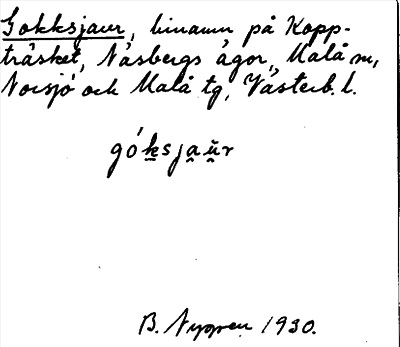 Gokksjaur, binamn på Kopp-
träsket, Näsbergs ägor, Malå sn,
Norsjö och Malå tg, Västerb. l.
gók̠sja̯ŭ̯r
B. Nygren 1930.